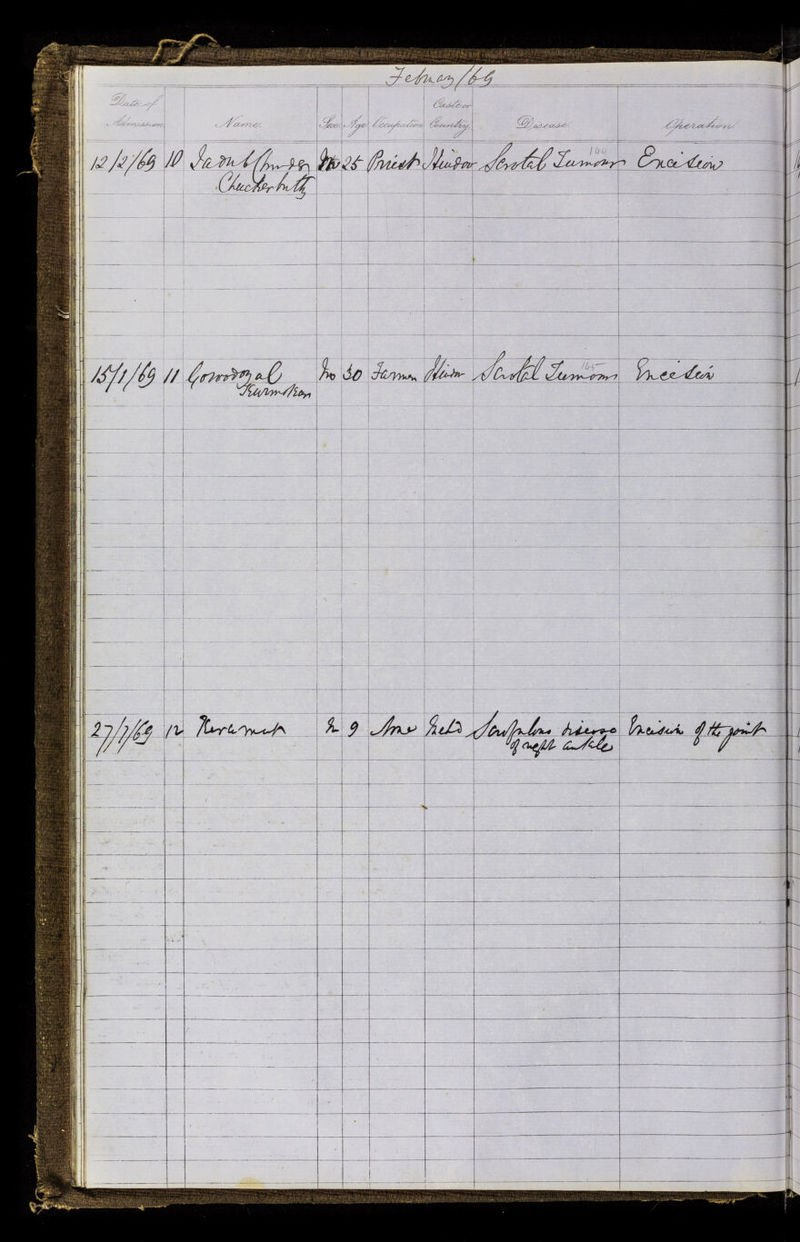 February / 69
Date of Admission Name. Sex Age Occupation Caste or Country. Disease Operation
12/2/69 10 Chunder M 25 Priest Hindoo Scrotal Tumour Excision
Chuckerbutty
15/1/69 11 M 30 Farmer Hindoo Scrotal Tumour 165 Excision
Kurmokar
27/7/69 12 Keramut M 9 None Scrofulous disease Excision of the joint
of right ankle